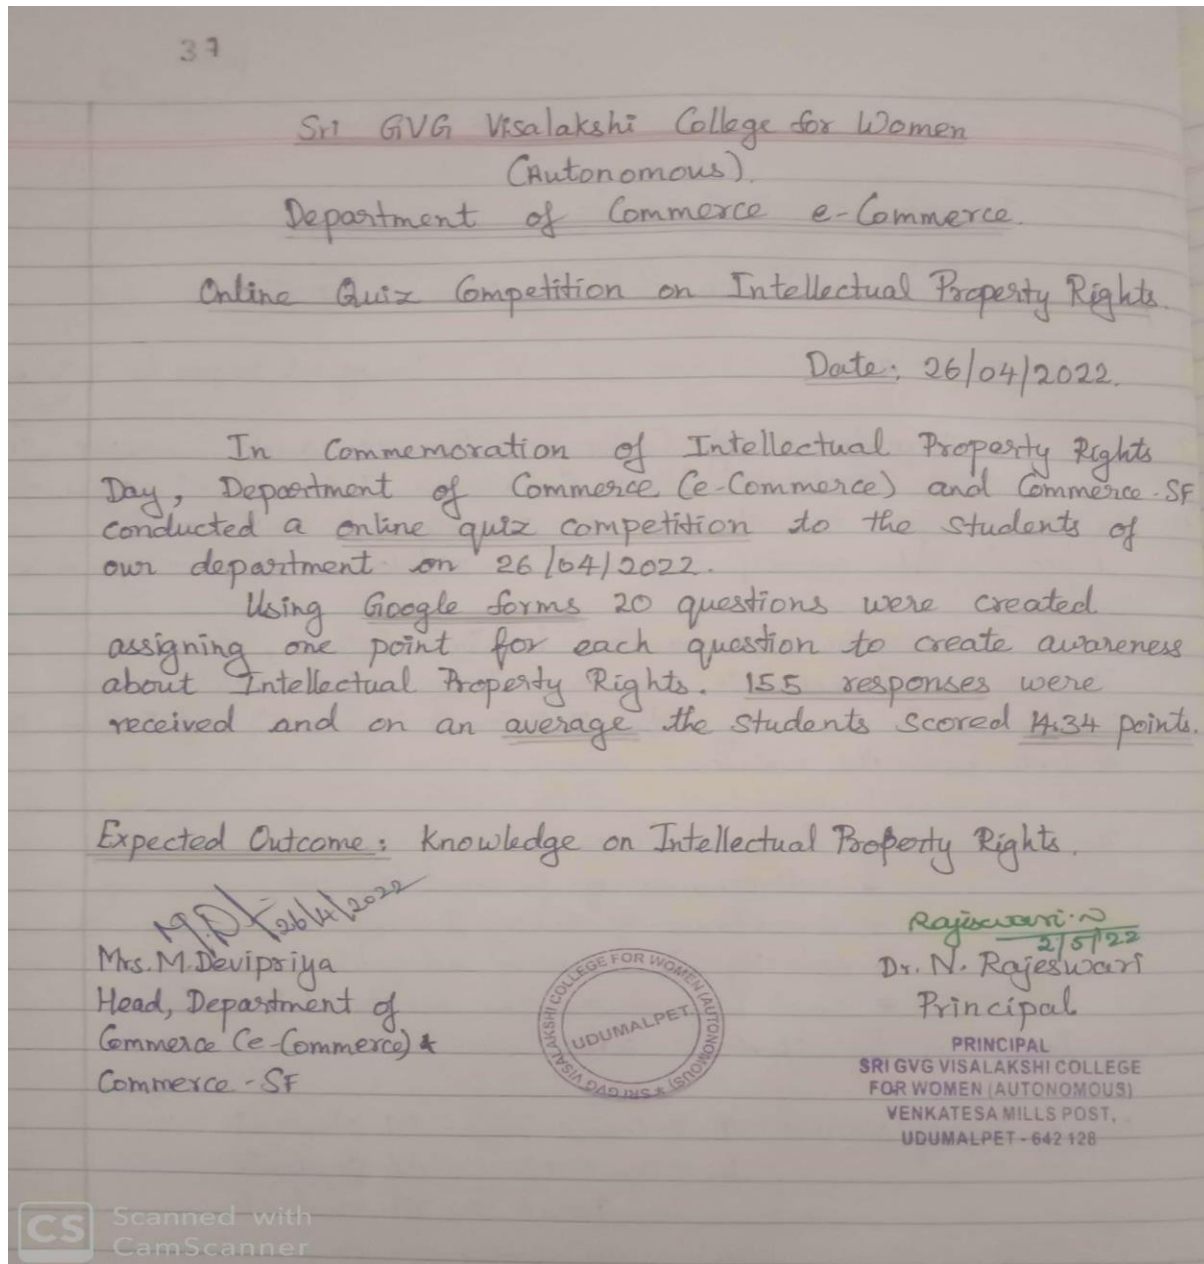 37
Sri GVG Visalakshi College for Women
(Autonomous).
Department of Commerce e-Commerce.
Online Quiz Competition on Intellectual Property Rights.
Date: 26/04/2022.
In Commemoration of Intellectual Property Rights
Day, Department of Commerce (e-Commerce) and Commerce-SF
conducted a online quiz competition to the students of
our department on 26/04/2022.
Using Google forms 20 questions were created
assigning one point for each question to create awareness
about Intellectual Property Rights. 155 responses were
received and on an average the students scored 14.34 points.
Expected Outcome: Knowledge on Intellectual Property Rights.
26/4/2022
Rajeswari.N
2/5/22
Mrs. M. Devipriya
Dr. N. Rajeswari
Head, Department of
Principal
Commerce (e-Commerce) &
Commerce-SF
SRI GVG VISALAKSHI COLLEGE FOR WOMEN (AUTONOMOUS) *
UDUMALPET
PRINCIPAL
SRI GVG VISALAKSHI COLLEGE
FOR WOMEN (AUTONOMOUS)
VENKATESA MILLS POST,
UDUMALPET - 642 128
CS Scanned with
CamScanner